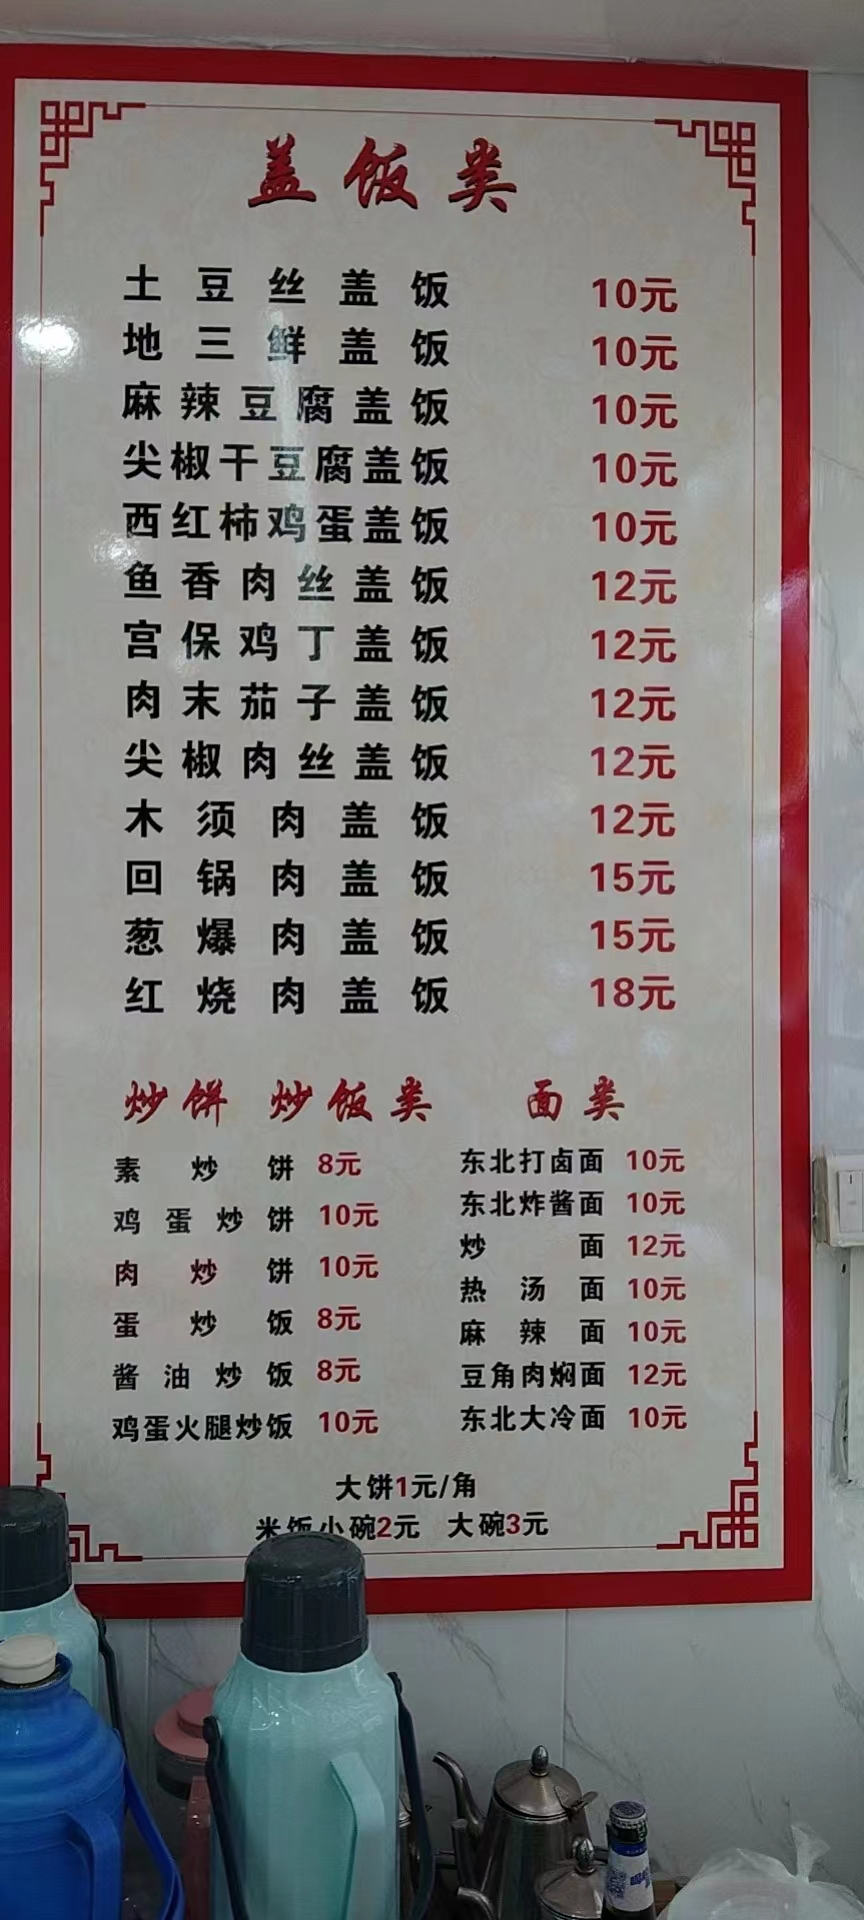 盖饭类
土豆丝盖饭 10元
地三鲜盖饭 10元
麻辣豆腐盖饭 10元
尖椒干豆腐盖饭 10元
西红柿鸡蛋盖饭 10元
鱼香肉丝盖饭 12元
宫保鸡丁盖饭 12元
肉末茄子盖饭 12元
尖椒肉丝盖饭 12元
木须肉盖饭 12元
回锅肉盖饭 15元
葱爆肉盖饭 15元
红烧肉盖饭 18元
炒饼 炒饭类
素炒饼 8元
鸡蛋炒饼 10元
肉炒饼 10元
蛋炒饭 8元
酱油炒饭 8元
鸡蛋火腿炒饭 10元
面类
东北打卤面 10元
东北炸酱面 10元
炒面 12元
热汤面 10元
麻辣面 10元
豆角肉焖面 12元
东北大冷面 10元
大饼1元/角
米饭小碗2元 大碗3元